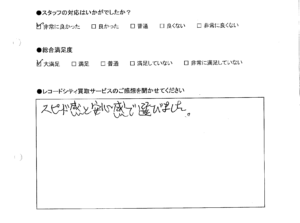 ●スタッフの対応はいかがでしたか？
☑非常に良かった □良かった □普通 □良くない □非常に良くない
●総合満足度
☑大満足 □満足 □普通 □満足していない □非常に満足していない
●レコードシティ買取サービスのご感想を聞かせてください
スピード感と安心感で選びました。